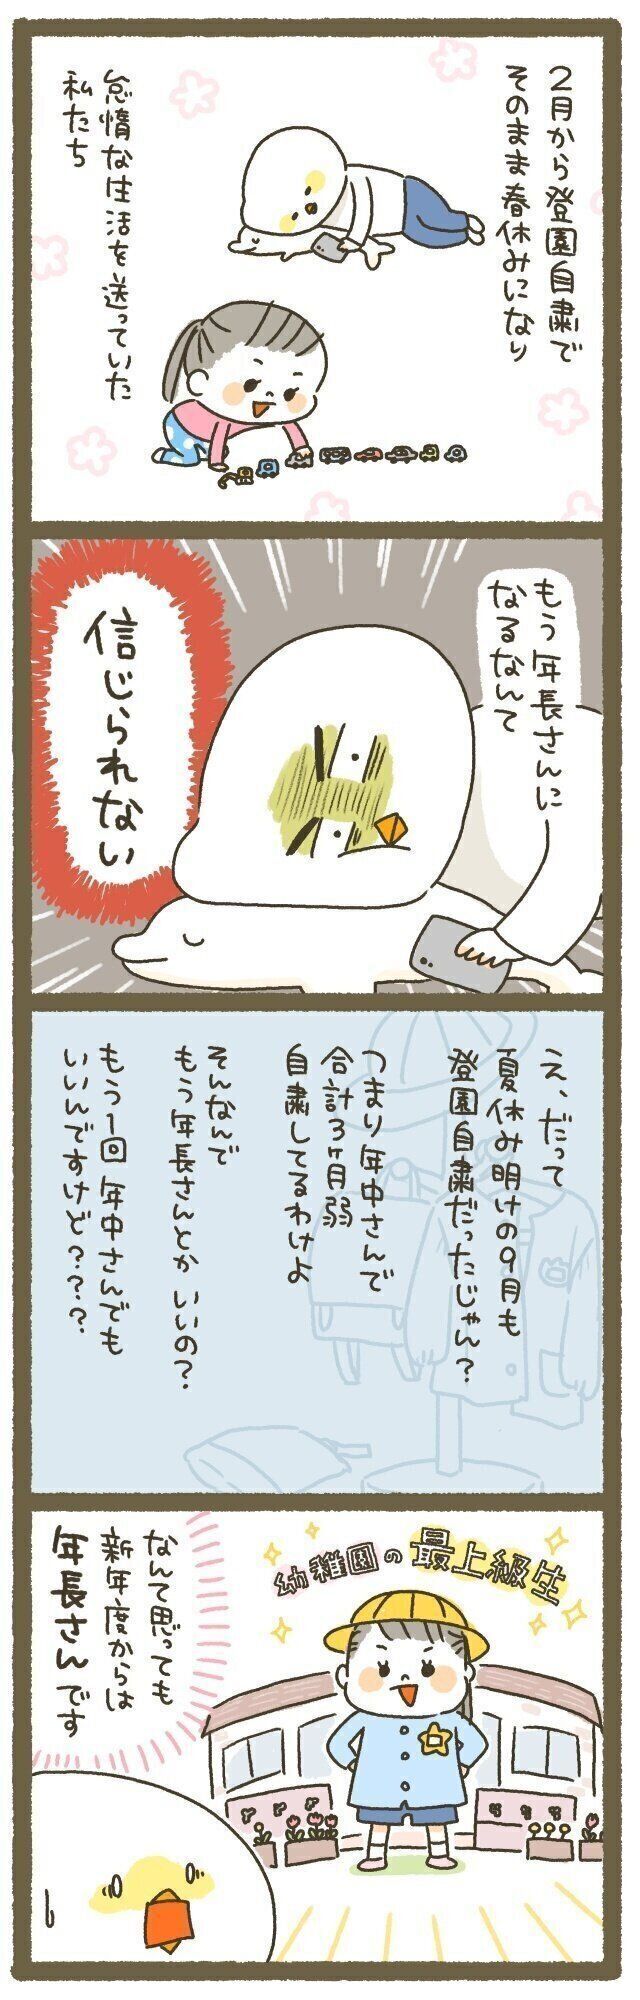 2月から登園自粛で
そのまま春休みになり
怠惰な生活を送っていた
私たち
もう年長さんに
なるなんて
信じられない
え、だって
夏休み明けの9月も
登園自粛だったじゃん?
つまり年中さんで
合計3ヶ月弱
自粛してるわけよ
そんなんで
もう年長さんとかいいの?
もう1回年中さんでも
いいんですけど???
幼稚園の最上級生
なんて思っても
新年度からは
年長さんです